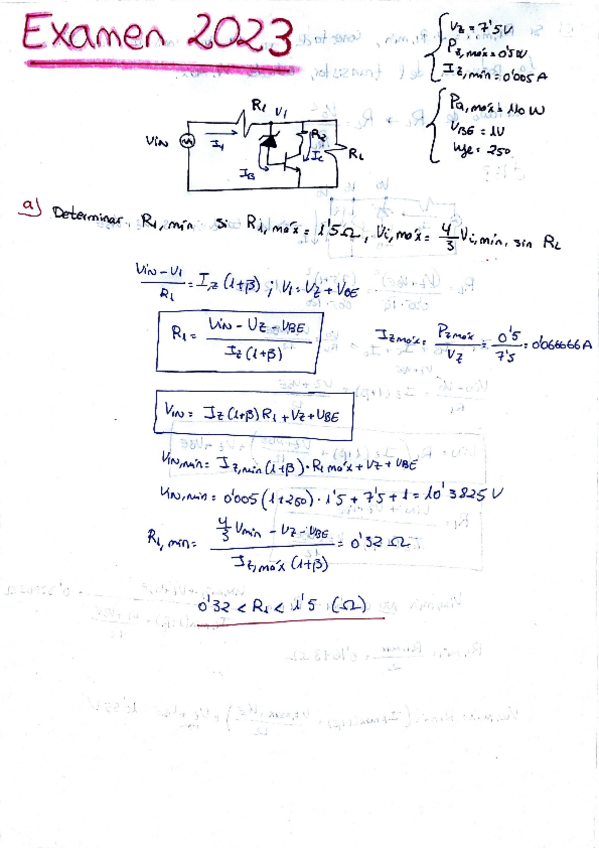 Examen 2023
Vz = 7'5V
Pz,máx = 0'5W
Iz,mín = 0'005 A
PQ,máx = 1'10 W
VBE = 1V
hfe = 250
R1
V1
Vin
I1
R2
Ic
IB
RL
a) Determinar R1,mín si R1,máx = 1'5Ω, Vi,máx = 4/3 Vi,mín, sin RL
Vin - V1 / R1 = Iz (1+β) ; V1 = Vz + VBE
R1 = Vin - Vz - VBE / Iz (1+β)
Izmáx = Pzmáx / Vz = 0'5 / 7'5 = 0'066666 A
Vin = Iz (1+β) R1 + Vz + VBE
Vin,mín = Iz,mín (1+β) · R1 máx + Vz + VBE
Vin,mín = 0'005 (1+250) · 1'5 + 7'5 + 1 = 10'3825 V
R1,mín = 4/3 Vmín - Vz - VBE / Iz,máx (1+β) = 0'32 Ω
0'32 < R1 < 1'5 (Ω)